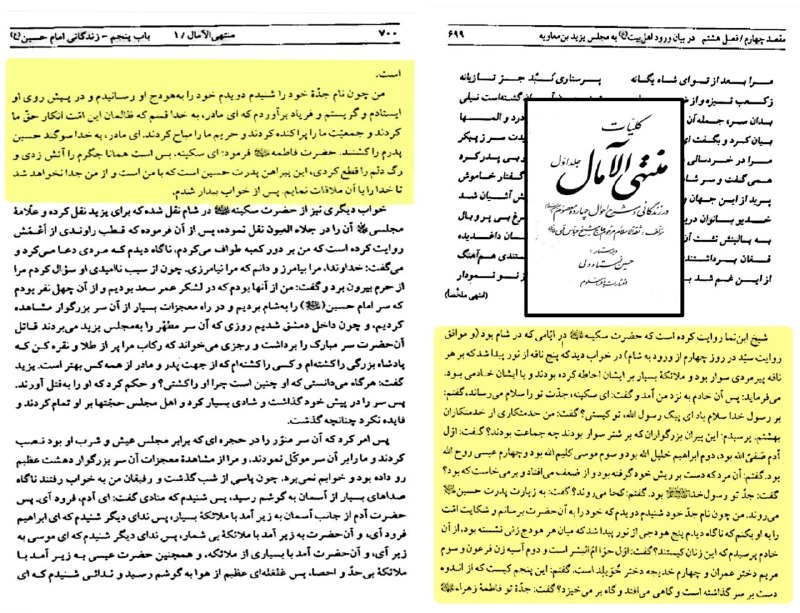 مقصد چهارم / فصل هشتم در بیان ورود اهل‌بیت(ع) به مجلس یزید بن معاویه ۶۹۹
مرا بعد از تو ای شاه یگانه پرستاری کُبد جز تازیانه
ز کعب نیزه و از گشته‌است نیلی
بدان سر، جمله آن در و المها
بیان کرد و بگفت ای دت سر ز پیکر
مرا در خردسالی بی پدر کرد
همی گفت و سر شا گفتار خاموش
پرید از این جهان و آشیان شد
خدیو بانوان دریـ رغ بی پر و بال
به بالینش نشت آن ان داغدیده
فغان برداشتند تندی هم‌آهنگ
از این غم شد به ز تو نمودار
(انتهی ملخصاً)
کلیّات
منتهی الآمال جلد اول
در زندگانی و شرح احوال چهارده معصوم
حسین استادولی
شیخ ابن‌نما روایت کرده است که حضرت سکینه در ایّامی که در شام بود (و موافق
روایت سیّد در روز چهارم از ورود به شام) در خواب دید که پنج ناقه از نور پیدا شد که بر هر
ناقه پیرمردی سوار بود و ملائکهٔ بسیار بر ایشان احاطه کرده بودند و با ایشان خادمی بود.
می‌فرماید: پس آن خادم به نزد من آمد و گفت: ای سکینه، جدّت تو را سلام می‌رساند، گفتم:
بر رسول خدا سلام باد ای پیک رسول الله، تو کیستی؟ گفت: من خدمتکاری از خدمتکاران
بهشتم. پرسیدم: این پیران بزرگواران که بر شتر سوار بودند چه جماعت بودند؟ گفت: اوّل
آدم صفیّ الله بود، دوم ابراهیم خلیل الله بود و سوم موسی کلیم الله بود و چهارم عیسی روح الله
بود. گفتم: آن مرد که دست بر ریش خود گرفته بود و از ضعف می‌افتاد و برمی‌خاست که بود؟
گفت: جدّ تو رسول خدا بود. گفتم: کجا می‌روند؟ گفت: به زیارت پدرت حسین
می‌روند. من چون نام جدّ خود شنیدم دویدم که خود را به آن حضرت برسانم و شکایت امّت
را به او بکنم که ناگاه دیدم پنج هودجی از نور پیدا شد که میان هر هودج زنی نشسته بود، از آن
خادم پرسیدم که این زنان کیستند؟ گفت: اوّل حوّا امّ البشر است و دوم آسیه زن فرعون و سوم
مریم دختر عمران و چهارم خدیجه دختر خُوَیلد است. گفتم: این پنجم کیست که از اندوه
دست بر سر گذاشته است و گاهی می‌افتد و گاه بر می‌خیزد؟ گفت: جدّهٔ تو فاطمهٔ زهراء
۷۰۰ منتهی الآمال / ۱ باب پنجم - زندگانی امام حسین(ع)
است.
من چون نام جدّهٔ خود را شنیدم دویدم خود را به‌هودج او رسانیدم و در پیش روی او
ایستادم و گریستم و فریاد برآوردم که ای مادر، به خدا قسم که ظالمان این امّت انکار حقّ ما
کردند و جمعیّت ما را پراکنده کردند و حریم ما را مباح کردند. ای مادر، به خدا سوگند حسین
پدرم را کشتند. حضرت فاطمه فرمود: ای سکینه، بس است همانا جگرم را آتش زدی و
رگ دلم را قطع کردی، این پیراهن پدرت حسین است که با من است و از من جدا نخواهد شد
تا خدا را با آن ملاقات نمایم. پس از خواب بیدار شدم.
خواب دیگری نیز از حضرت سکینه در شام نقل شده که برای یزید نقل کرده و علّامهٔ
مجلسی آن را در جلاء العیون نقل نموده، پس از آن فرموده که قطب راوندی از أَعْمَش
روایت کرده است که من بر دور کعبه طواف می‌کردم، ناگاه دیدم که مردی دعا می‌کرد و
می‌گفت: خداوندا، مرا بیامرز و دانم که مرا نیامرزی. چون از سبب ناامیدی او سؤال کردم مرا
از حرم بیرون برد و گفت: من از آنها بودم که در لشکر عمر سعد بودیم و از آن چهل نفر بودم
که سر امام حسین() را به‌شام بردیم و در راه معجزات بسیار از آن سر بزرگوار مشاهده
کردیم، و چون داخل دمشق شدیم روزی که آن سر مطهّر را به‌مجلس یزید می‌بردند قاتل
آن‌حضرت سر مبارک را برداشت و رجزی می‌خواند که رکاب مرا پر از طلا و نقره کن که
پادشاه بزرگی را کشته‌ام و کسی را کشته‌ام که از جهت پدر و مادر از همه کس بهتر است. یزید
گفت: هرگاه می‌دانستی که او چنین است چرا او را کشتی؟ و حکم کرد که او را به‌قتل آورند.
پس سر را در پیش خود گذاشت و شادی بسیار کرد و اهل مجلس حجّتها بر او تمام کردند و
فایده نکرد چنانچه گذشت.
پس امر کرد که آن سر منوّر را در حجره‌ای که برابر مجلس عیش و شرب او بود نصب
کردند و ما را بر آن سر موکّل نمودند، و مرا از مشاهدهٔ معجزات آن سر بزرگوار دهشت عظیم
رو داده بود و خوابم نمی‌برد. چون پاسی از شب گذشت و رفیقان من به خواب رفتند ناگاه
صداهای بسیار از آسمان به گوشم رسید، پس شنیدم که منادی گفت: ای آدم، فرود آی. پس
حضرت آدم از جانب آسمان به زیر آمد با ملائکهٔ بسیار، پس ندای دیگر شنیدم که ای ابراهیم
فرود آی، و آن‌حضرت به زیر آمد با ملائکهٔ بی شمار، پس ندای دیگر شنیدم که ای موسی به
زیر آی، و آن‌حضرت آمد با بسیاری از ملائکه، و همچنین حضرت عیسی به زیر آمد با
ملائکهٔ بی‌حدّ و احصا، پس غلغله‌ای عظیم از هوا به گوشم رسید و ندائی شنیدم که ای